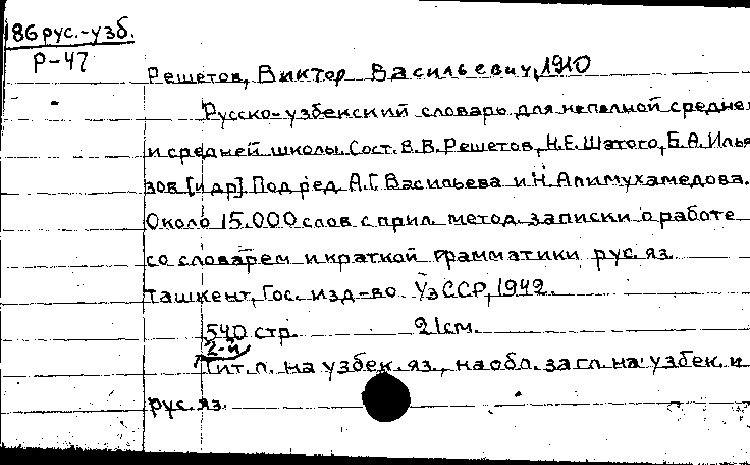 186 рус.-узб.
Р-47
Решетов, Виктор Васильевич, 1910
Русско-узбекский словарь для неполной средне
и средней школы. Сост. В.В. Решетов, Н.Е. Шатого, Б.А. Илья
зов [и др] Под ред. А.Г. Васильева и Н. Алимухамедова.
Около 15.000 слов с прил. метод. записки о работе
со словарем и краткой грамматики рус. яз.
Ташкент, Гос. изд-во УзССР, 1942.
540 стр. 21 см.
2-й
Тит. л. на узбек. яз., на обл. загл. на узбек. и
рус. яз.